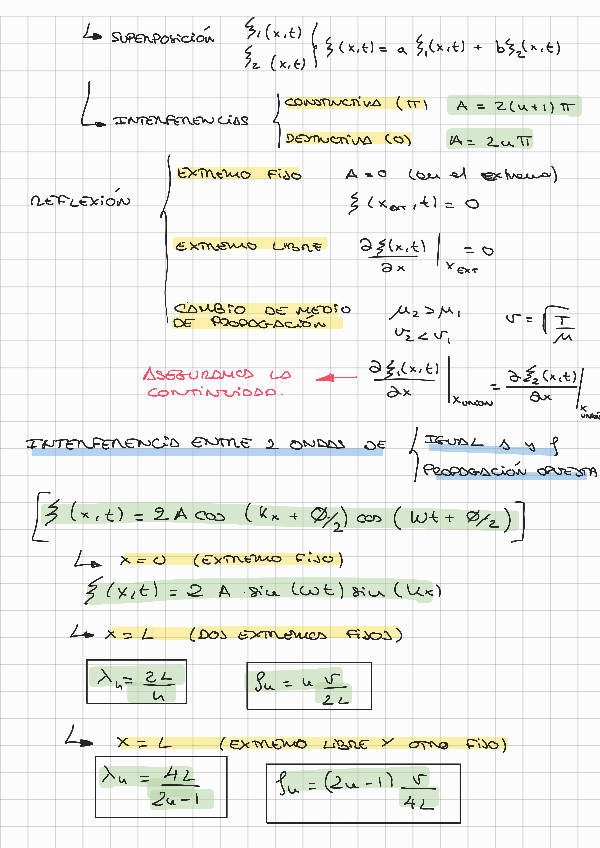 ↳ SUPERPOSICIÓN ξ₁(x,t) ξ₂(x,t) { ξ(x,t) = a ξ₁(x,t) + b ξ₂(x,t)
↳ INTERFERENCIAS
CONSTRUCTIVA (π) A = 2(n+1)π
DESTRUCTIVA (0) A = 2nπ
REFLEXIÓN
EXTREMO FIJO A=0 (en el extremo)
ξ(x_EXT, t) = 0
EXTREMO LIBRE ∂ξ(x,t)/∂x |x_EXT = 0
CAMBIO DE MEDIO DE PROPAGACIÓN
μ₂ > μ₁
v₂ < v₁
v = √(T/μ)
ASEGURAMOS LA CONTINUIDAD. ← ∂ξ₁(x,t)/∂x |x_UNION = ∂ξ₂(x,t)/∂x |x_UNION
INTERFERENCIA ENTRE 2 ONDAS DE { IGUAL A y f
PROPAGACIÓN OPUESTA
[ξ(x,t) = 2A cos (Kx + Ø/2) cos (Wt + Ø/2)]
↳ x=0 (EXTREMO FIJO)
ξ(x,t) = 2 A · sin (wt) sin (Kx)
↳ x = L (DOS EXTREMOS FIJOS)
λn = 2L/n
fn = n v/2L
↳ x = L (EXTREMO LIBRE Y OTRO FIJO)
λn = 4L/2n-1
fn = (2n-1) v/4L